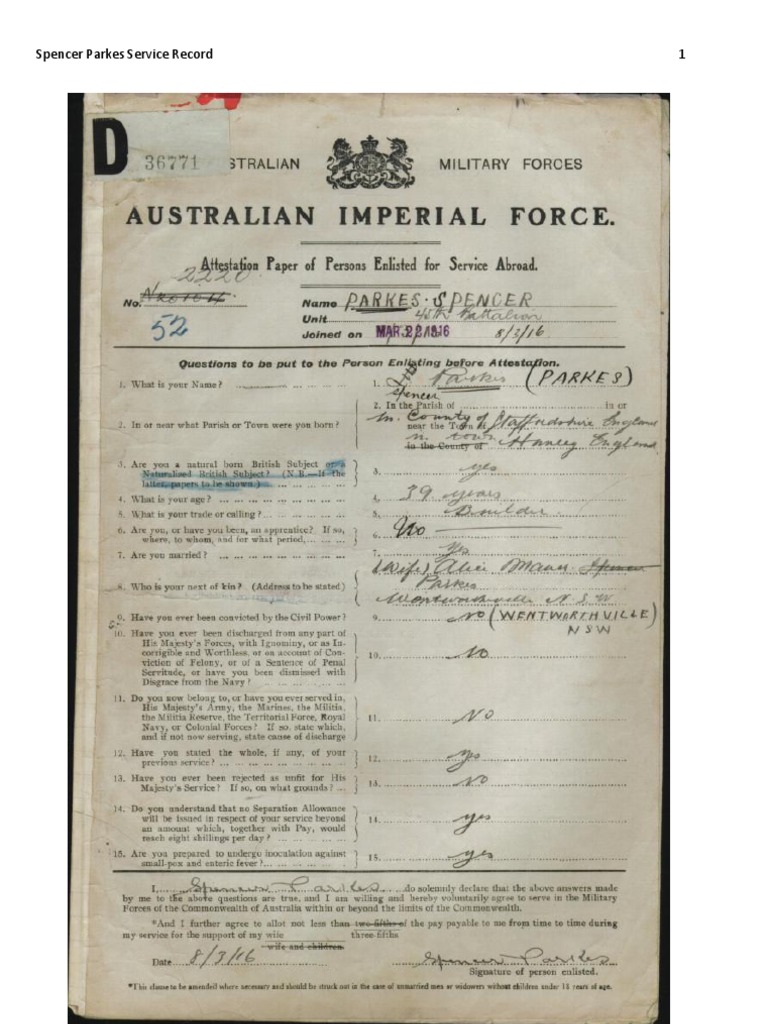 Spencer Parkes Service Record 1
D 36771 STRALIAN MILITARY FORCES
AUSTRALIAN IMPERIAL FORCE.
Attestation Paper of Persons Enlisted for Service Abroad.
2220
No. Name PARKES. SPENCER
52 Unit 45th Battalion
Joined on MAR 22 1916 8/3/16
Questions to be put to the Person Enlisting before Attestation.
1. What is your Name? 1. Parkes (PARKES)
Spencer
2. In or near what Parish or Town were you born? 2. In the Parish of in or
near the Town of County of Staffordshire England
in the County of n. town Hanley England
3. Are you a natural born British Subject or a
Naturalised British Subject? (N.B.—If the
latter, papers to be shown.) 3. yes
4. What is your age? 4. 39 years
5. What is your trade or calling? 5. Builder
6. Are you, or have you been, an apprentice? If so,
where, to whom, and for what period, 6. No
7. Are you married? 7. Yes
8. Who is your next of kin? (Address to be stated) (Wife) Alice Spencer
Parkes
Wentworthville N.S.W
9. Have you ever been convicted by the Civil Power? 9. No (WENTWORTHVILLE)
NSW
10. Have you ever been discharged from any part of
His Majesty's Forces, with Ignominy, or as In-
corrigible and Worthless, or on account of Con-
viction of Felony, or of a Sentence of Penal
Servitude, or have you been dismissed with
Disgrace from the Navy? 10. No
11. Do you now belong to, or have you ever served in,
His Majesty's Army, the Marines, the Militia,
the Militia Reserve, the Territorial Force, Royal
Navy, or Colonial Forces? If so, state which,
and if not now serving, state cause of discharge 11. NO
12. Have you stated the whole, if any, of your
previous service? 12. yes
13. Have you ever been rejected as unfit for His
Majesty's Service? If so, on what grounds? 13. No
14. Do you understand that no Separation Allowance
will be issued in respect of your service beyond
an amount which, together with Pay, would
reach eight shillings per day? 14. yes
15. Are you prepared to undergo inoculation against
small-pox and enteric fever? 15. yes
I, Spencer Parkes do solemnly declare that the above answers made
by me to the above questions are true, and I am willing and hereby voluntarily agree to serve in the Military
Forces of the Commonwealth of Australia within or beyond the limits of the Commonwealth.
*And I further agree to allot not less than two-fifths of the pay payable to me from time to time during
my service for the support of my wife three-fifths
wife and children.
Date 8/3/16 Spencer Parkes
Signature of person enlisted.
*This clause to be amended where necessary and should be struck out in the case of unmarried men or widowers without children under 18 years of age.